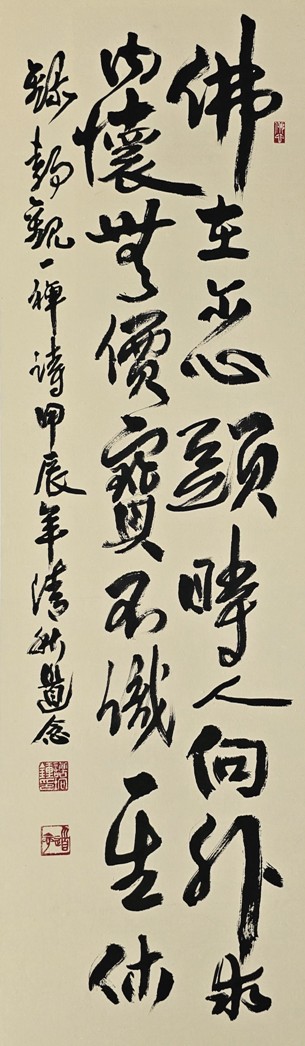 佛在尔心頭時人向外求
內懷無價寶不識一生休
錄靜觀一禪詩甲辰年清秋